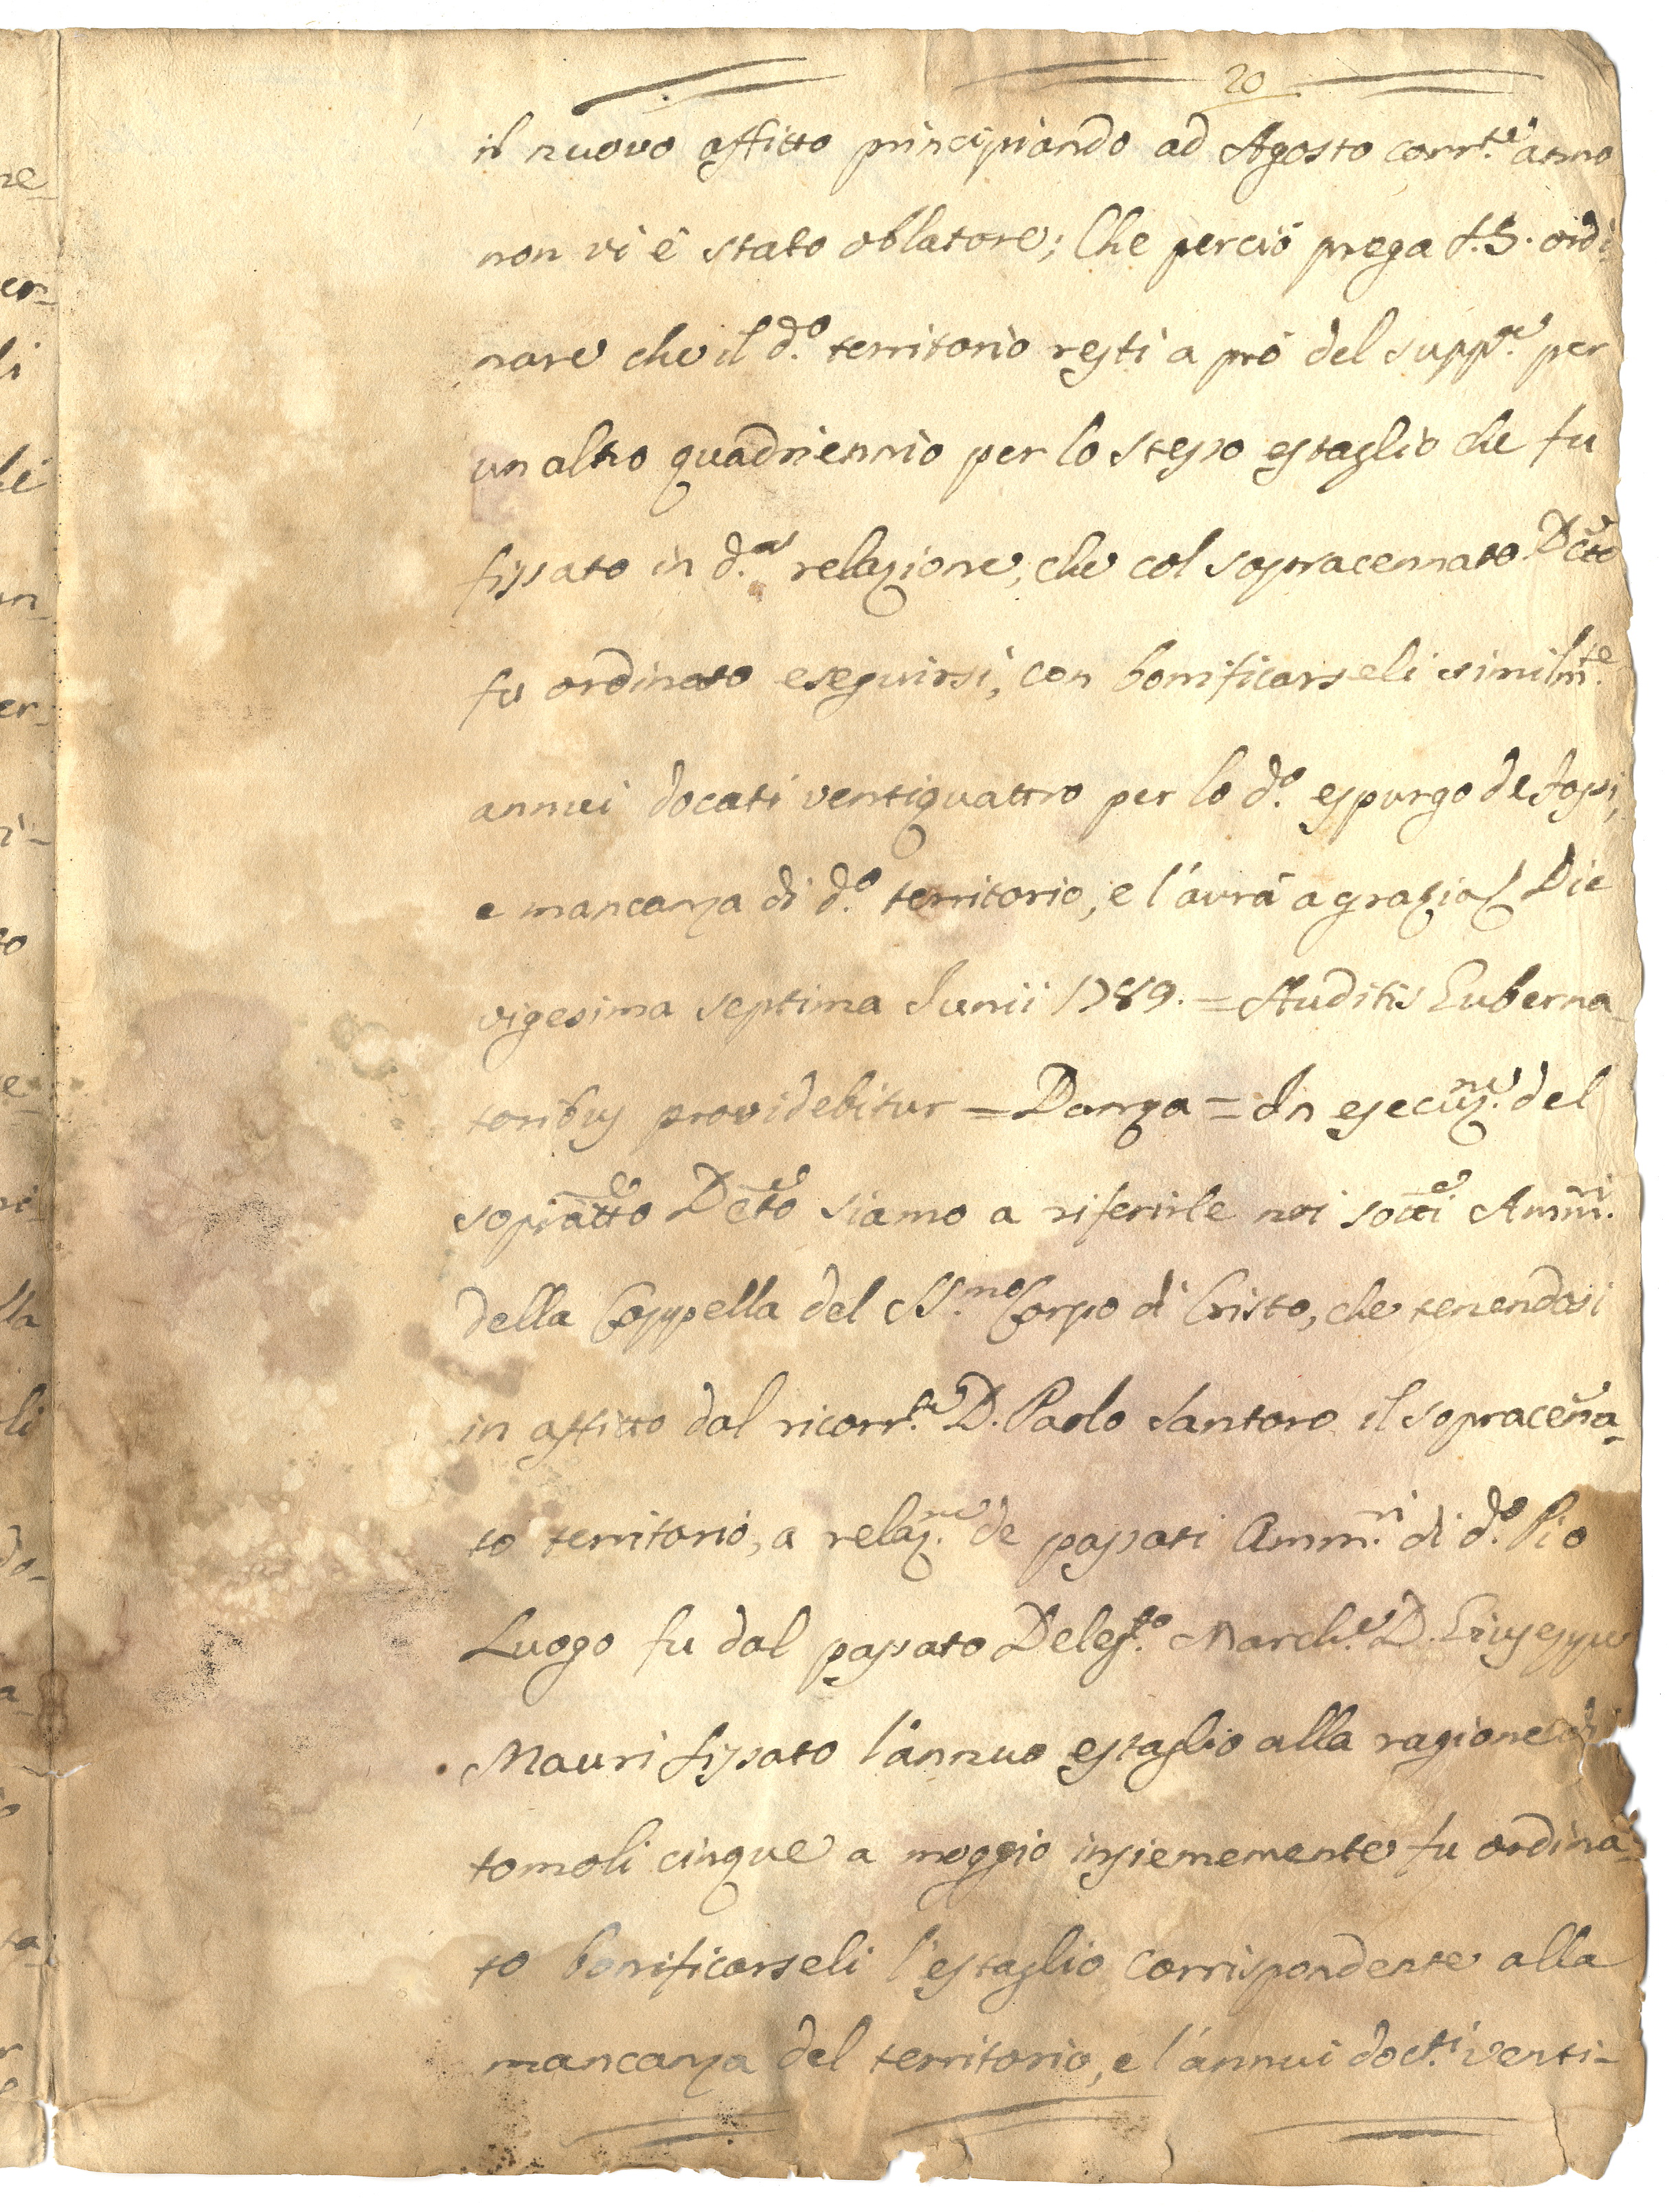 20
il nuovo affitto principiando ad Agosto corr.te anno
non vi è stato oblatore; Che perciò prega V.S. ordi-
nare che il d.o territorio resti a prò del supp.te per
un altro quadriennio per lo stesso estaglio che fu
fissato in d.a relazione, che col sopracennato Dcto
fu ordinato eseguirsi, con bonificarseli similm.te
annui docati ventiquattro per lo d.o espurgo de fossi,
e mancanza di d.o territorio, e l'avrà a grazia Die
vigesima septima Junii 1789. = Auditis Guberna-
toribus providebitur = Danza = In esecuz.ne del
sopradtto Dcto siamo a riferirle noi sotti Amm.ri
della Cappella del SS.mo Corpo di Cristo, che tenendosi
in affitto dal ricorr.te D. Paolo Santoro il sopracenna-
to territorio, a relaz.ne de passati Amm.ri di d.o Pio
Luogo fu dal passato Deleg.to March.e D. Giuseppe
Mauri fissato l'annuo estaglio alla ragione di
tomoli cinque a moggio insiememente fu ordina-
to bonificarseli l'estaglio corrispondente alla
mancanza del territorio, e l'annui doc.ti venti-